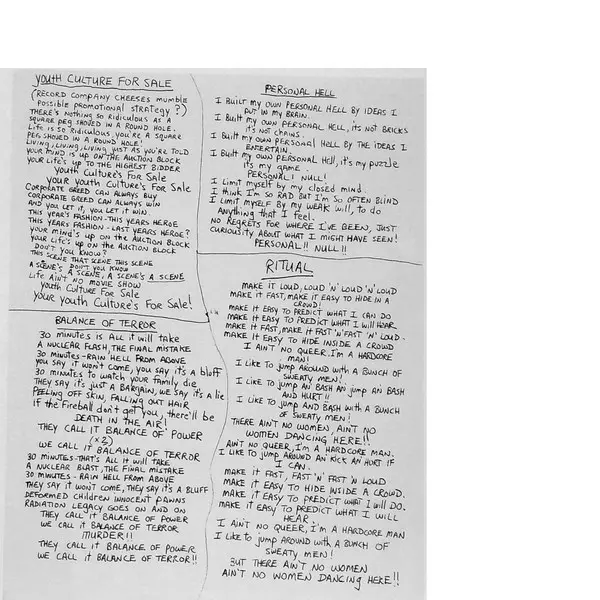 youth CULTURE FOR SALE
(RECORD COMPANY CHEESES mumble
possible promotional strategy?)
THERE'S NOTHING SO RIDICULOUS AS A
SQUARE PEG SHOVED IN A ROUND HOLE.
Life is so ridiculous, you're a square
PEG SHOVED IN A ROUND HOLE!
Living, Living, Living, just as you're told
your mind's up on the auction block
your life's up to the highest bidder
youth Culture's For Sale
your youth Culture's For Sale
Corporate greed can always buy
Corporate greed can always win
And you let it, you let it win.
This year's fashion - this years heroe
This years fashion - last years heroe?
your mind's up on the auction block
your life's up on the auction block
Don't you know?
This scene that scene this scene
A scene's don't you know
A scene, A scene's A scene
Life Ain't no movie show
youth Culture For Sale
your youth Culture's For Sale!
BALANCE OF TERROR
30 minutes is all it will take
A nuclear flash, the final mistake
30 minutes - rain hell from above
you say it won't come, you say it's a bluff
30 minutes to watch your family die
They say it's just a bargain, we say it's a lie
Peeling off skin, falling out hair
If the Fireball don't get you, there'll be
DEATH IN THE AIR!
THEY CALL IT BALANCE OF POWER
(x2)
WE CALL IT BALANCE OF TERROR
30 minutes - that's all it will take
A nuclear blast, the final mistake
30 minutes - rain hell from above
They say it won't come, they say it's a bluff
Deformed children innocent pawns
Radiation legacy goes on and on
They call it balance of power
we call it balance of terror
MURDER!!
They call it balance of power
We call it balance of terror!!
PERSONAL HELL
I built my own personal hell by ideas I
put in my brain.
I built my own personal hell, its not bricks
it's not chains.
I built my own personal hell by the ideas I
entertain.
I built my own personal hell, it's my puzzle
it's my game.
PERSONAL! NULL!
I limit myself by my closed mind.
I think I'm so rad but I'm so often blind
I limit myself by my weak will, to do
Anything that I feel.
No regrets for where I've been, just
curiosity about what I might have seen!
PERSONAL!! NULL!!
RITUAL
MAKE IT LOUD, LOUD 'N' LOUD 'N' LOUD
MAKE IT FAST, MAKE IT EASY TO HIDE IN A
CROWD!
MAKE IT EASY TO PREDICT WHAT I CAN DO
MAKE IT EASY TO PREDICT WHAT I WILL HEAR
MAKE IT FAST, MAKE IT FAST 'N' FAST 'N' LOUD.
MAKE IT EASY TO HIDE INSIDE A CROWD
I AIN'T NO QUEER. I'M A HARDCORE
MAN!
I like to jump around with a bunch of
sweaty men!
I like to jump an bash an jump an bash
and hurt!!
I like to jump and bash with a bunch
of sweaty men!
THERE AIN'T NO WOMEN, AIN'T NO
WOMEN DANCING HERE!!
AIN'T NO QUEER, I'M A HARDCORE MAN.
I like to jump around an kick an hurt if
I CAN.
MAKE IT FAST, FAST 'N' FAST 'N' LOUD
MAKE IT EASY TO HIDE INSIDE A CROWD.
MAKE IT EASY TO PREDICT WHAT I WILL DO.
MAKE IT EASY TO PREDICT WHAT I WILL
HEAR.
I AIN'T NO QUEER, I'M A HARDCORE MAN
I like to jump around with a bunch of
SWEATY MEN!
BUT THERE AIN'T NO WOMEN
AIN'T NO WOMEN DANCING HERE!!